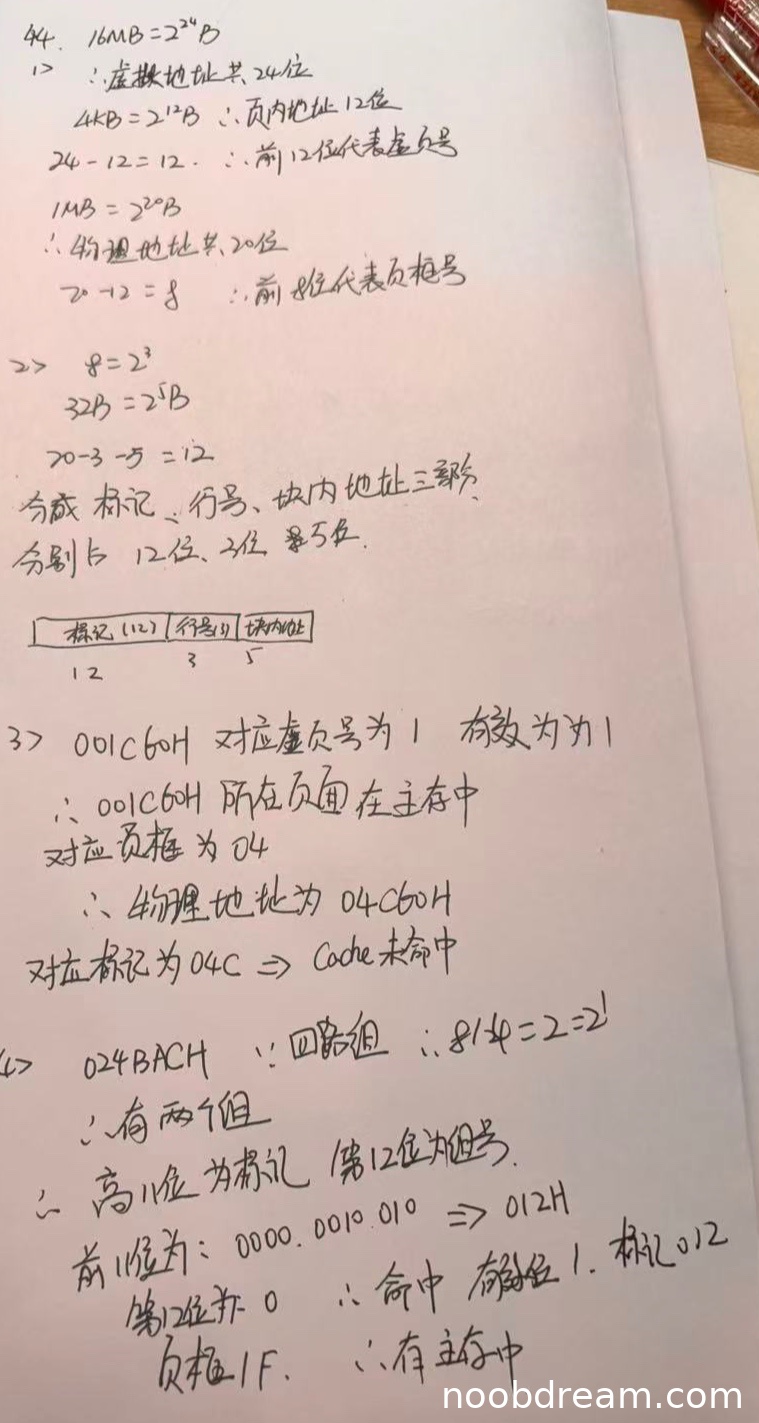 44. 16MB=2²⁴B
1> ∴虚拟地址共24位
4KB=2¹²B ∴页内地址12位
24-12=12. ∴前12位代表虚页号
1MB=2²⁰B
∴物理地址共20位
20-12=8 ∴前8位代表页框号
2> 8=2³
32B=2⁵B
20-3-5=12
分成 标记、行号、块内地址三部分、
分别占 12位、3位 5位.
标记(12) 行号(3) 块内地址
12 3 5
3> 001C60H 对应虚页号为1 有效为为1
∴ 001C60H 所在页面在主存中
对应页框为04
∴ 物理地址为 04C60H
对应标记为04C => Cache未命中
4> 024BACH ∵四路组 ∴8/4=2=2¹
∴有两个组
∴ 高11位为标记 第12位为组号.
前11位为: 0000.0010.010 => 012H
第12位为 0 ∴命中 有效位1. 标记012
页框1F. ∴有主存中
noobdream.com